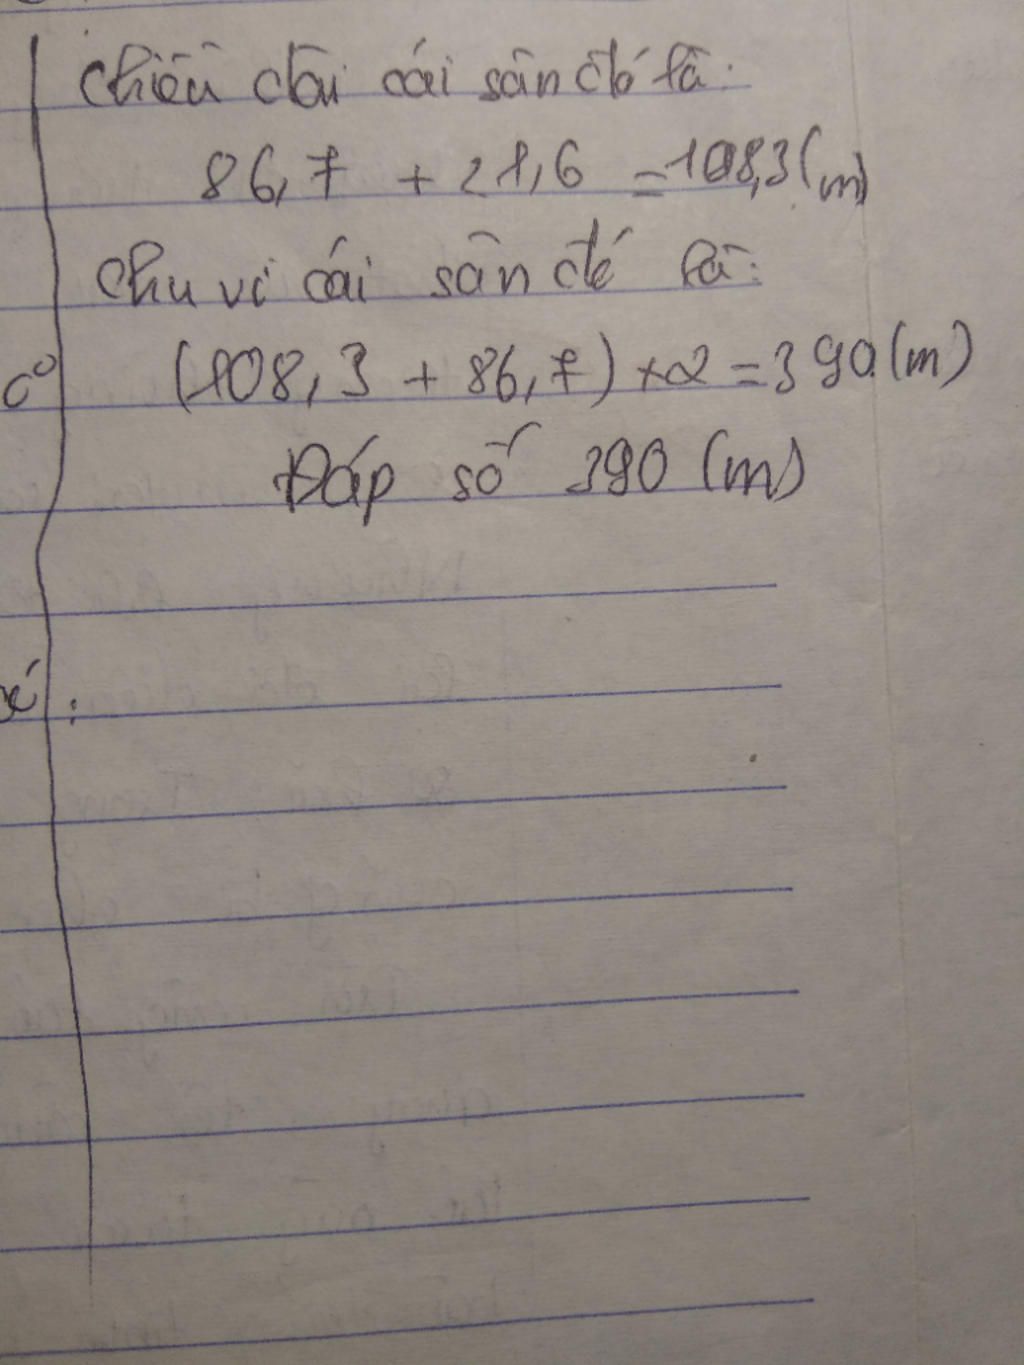 Chiều dài cái sân đó là:
86,7 + 21,6 = 108,3 (m)
Chu vi cái sân đó là:
(108,3 + 86,7) x 2 = 390 (m)
Đáp số 390 (m)